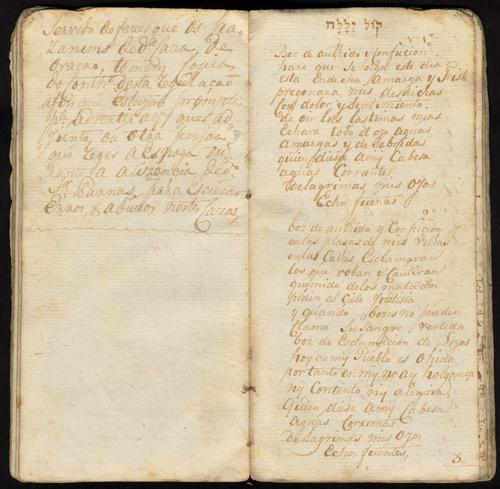 Servido de fazer que os ha
zanems de dª caza, De
oração, tomem
desta
a for que estejam promptos
pª advertir aos q̃ ues ad
Junto, ou otra pesoa
que Reger a Esnoga du
rante la auzencia de
Sʳ Parnas, para Escuzar
Erros, & abuzos nestes Cazos,
קול יללה
1º
Boz de aullido y Confucion
hare que se Ioiga este dia
esta Endecha, Amarga y triste
pregonara mis desdichas
con dolor y sentimiento.
de oir las lastimas mias
Echara todo el ojo aguas
Amargas y de sabridas
quien diese a my Cabesa
aguas Corrientes,
de lagrimas mis ojos
Echos fuentes
2º
boz de aullido y Confucion
en las plasas de mis Villas
en las Calles Esclamaran
los que roban y Cautivan
quemido de los matados
piden al Cielo Justisia
y quando bozes no pueden
Clama Su Sangre Vertida
boz de Esclamasion de Lloros
hoy de my Pueblo es ohida
por tanto en my no ay holganza
ny Contento, ny alegria
Quien diese a my Cabesa
aguas Corrientes
De Lagrimas mis ojos
Echos fuentes,
3.